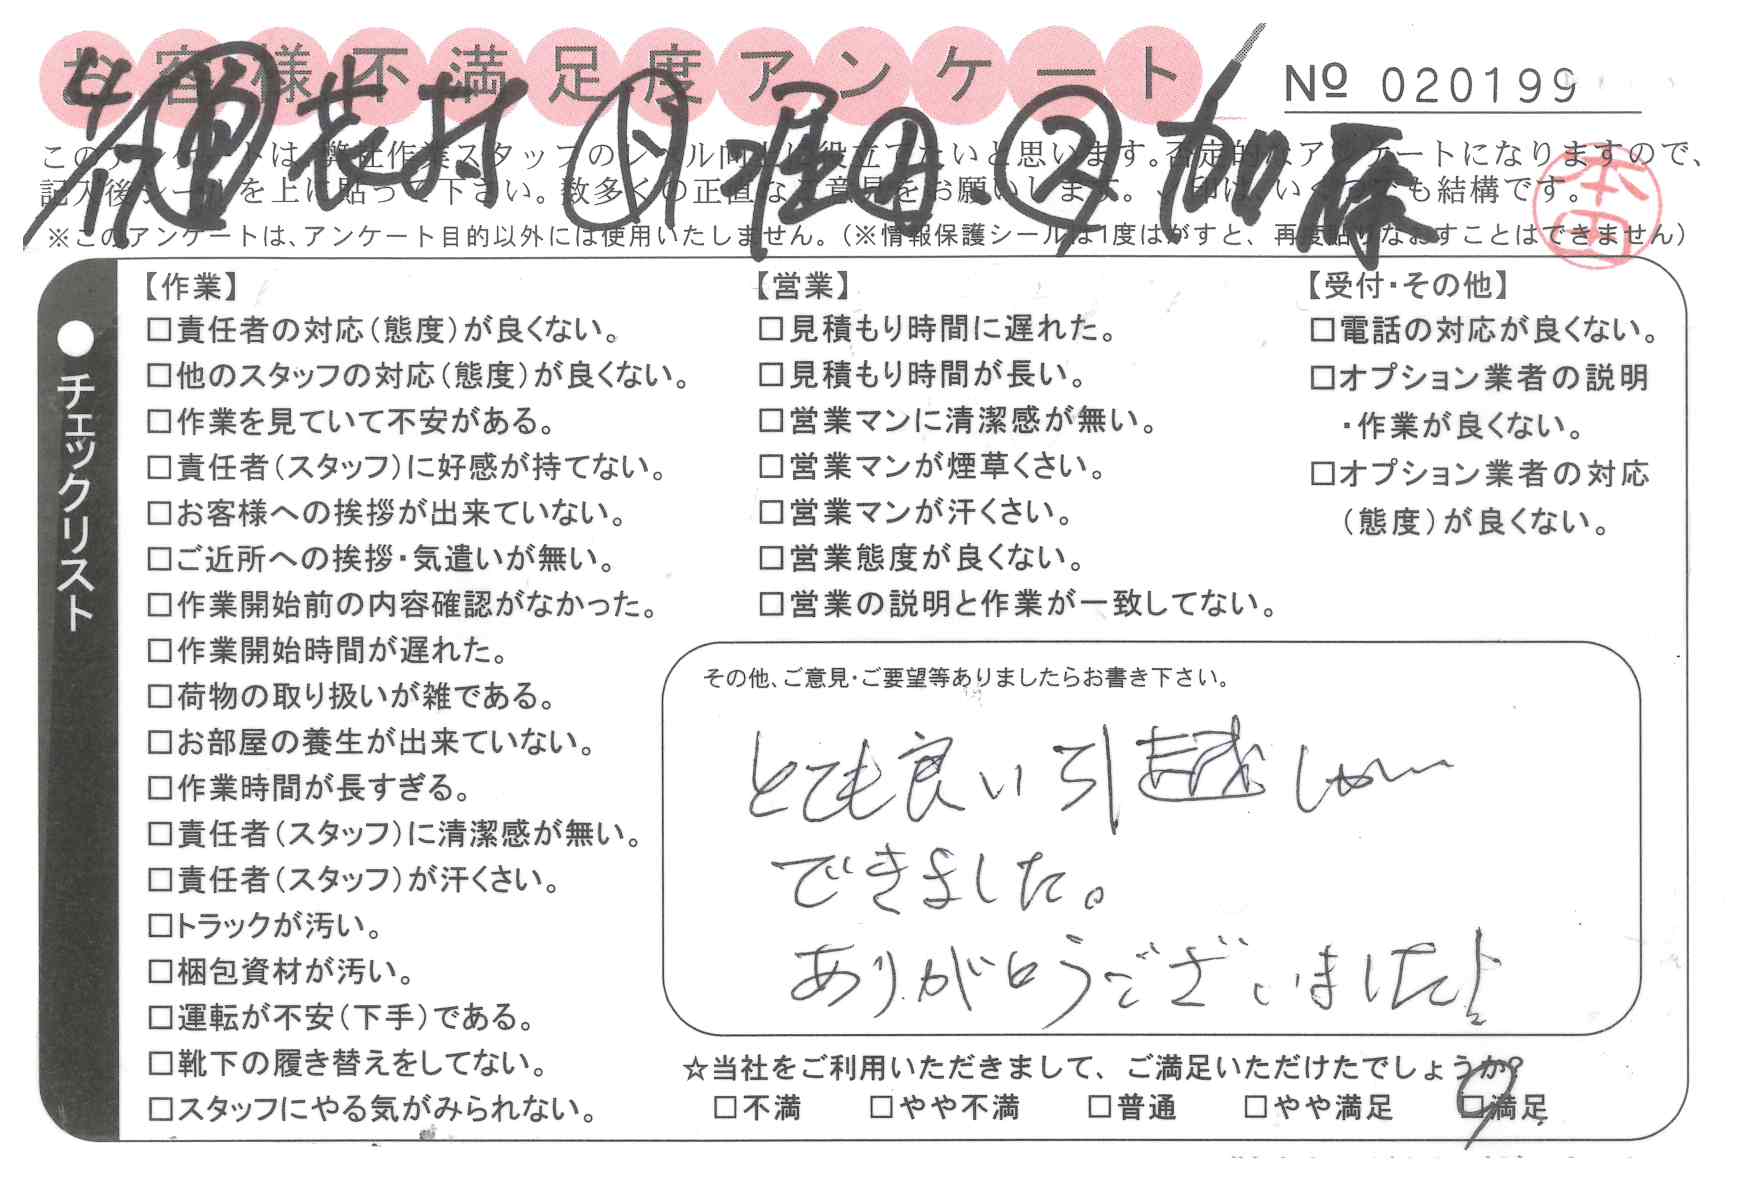 お客様不満足度アンケート
№ 020199
このアンケートは、弊社作業スタッフのレベル向上に役立てたいと思います。否定的なアンケートになりますので、
記入後シールを上に貼って下さい。数多くの正直なご意見をお願いします。、印は、いくつでも結構です。
※このアンケートは、アンケート目的以外には使用いたしません。(※情報保護シールは1度はがすと、再度貼りなおすことはできません)
加藤
本田
●チェックリスト
【作業】
□責任者の対応(態度)が良くない。
□他のスタッフの対応(態度)が良くない。
□作業を見ていて不安がある。
□責任者(スタッフ)に好感が持てない。
□お客様への挨拶が出来ていない。
□ご近所への挨拶・気遣いが無い。
□作業開始前の内容確認がなかった。
□作業開始時間が遅れた。
□荷物の取り扱いが雑である。
□お部屋の養生が出来ていない。
□作業時間が長すぎる。
□責任者(スタッフ)に清潔感が無い。
□責任者(スタッフ)が汗くさい。
□トラックが汚い。
□梱包資材が汚い。
□運転が不安(下手)である。
□靴下の履き替えをしてない。
□スタッフにやる気がみられない。
【営業】
□見積もり時間に遅れた。
□見積もり時間が長い。
□営業マンに清潔感が無い。
□営業マンが煙草くさい。
□営業マンが汗くさい。
□営業態度が良くない。
□営業の説明と作業が一致してない。
【受付・その他】
□電話の対応が良くない。
□オプション業者の説明
・作業が良くない。
□オプション業者の対応
(態度)が良くない。
その他、ご意見・ご要望等ありましたらお書き下さい。
とても良い引越し
できました。
ありがとうございました!
☆当社をご利用いただきまして、ご満足いただけたでしょうか?
□不満 □やや不満 □普通 □やや満足 □満足